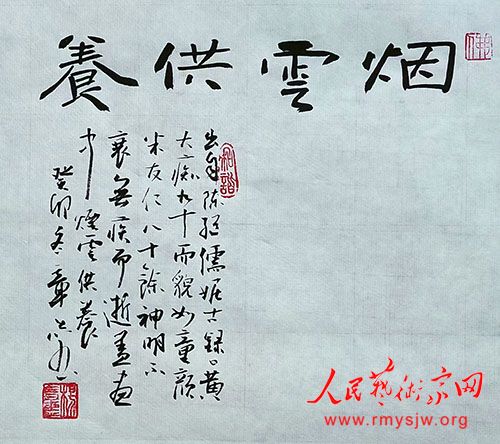 烟雲供養
出自陈继儒妮古録黄
大痴九十而貌如童颜
米友仁八十餘神明不
衰無疾而逝蓋画
中煙雲供養
癸卯冬章
和諧
人民藝術家网
www.rmysjw.org